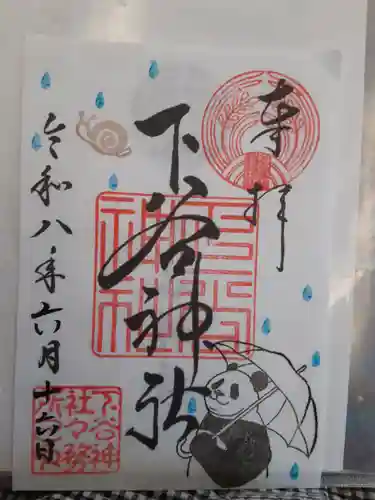 奉拝
下谷神社
下谷神社
令和八年六月十六日
下谷神
社々務
所印